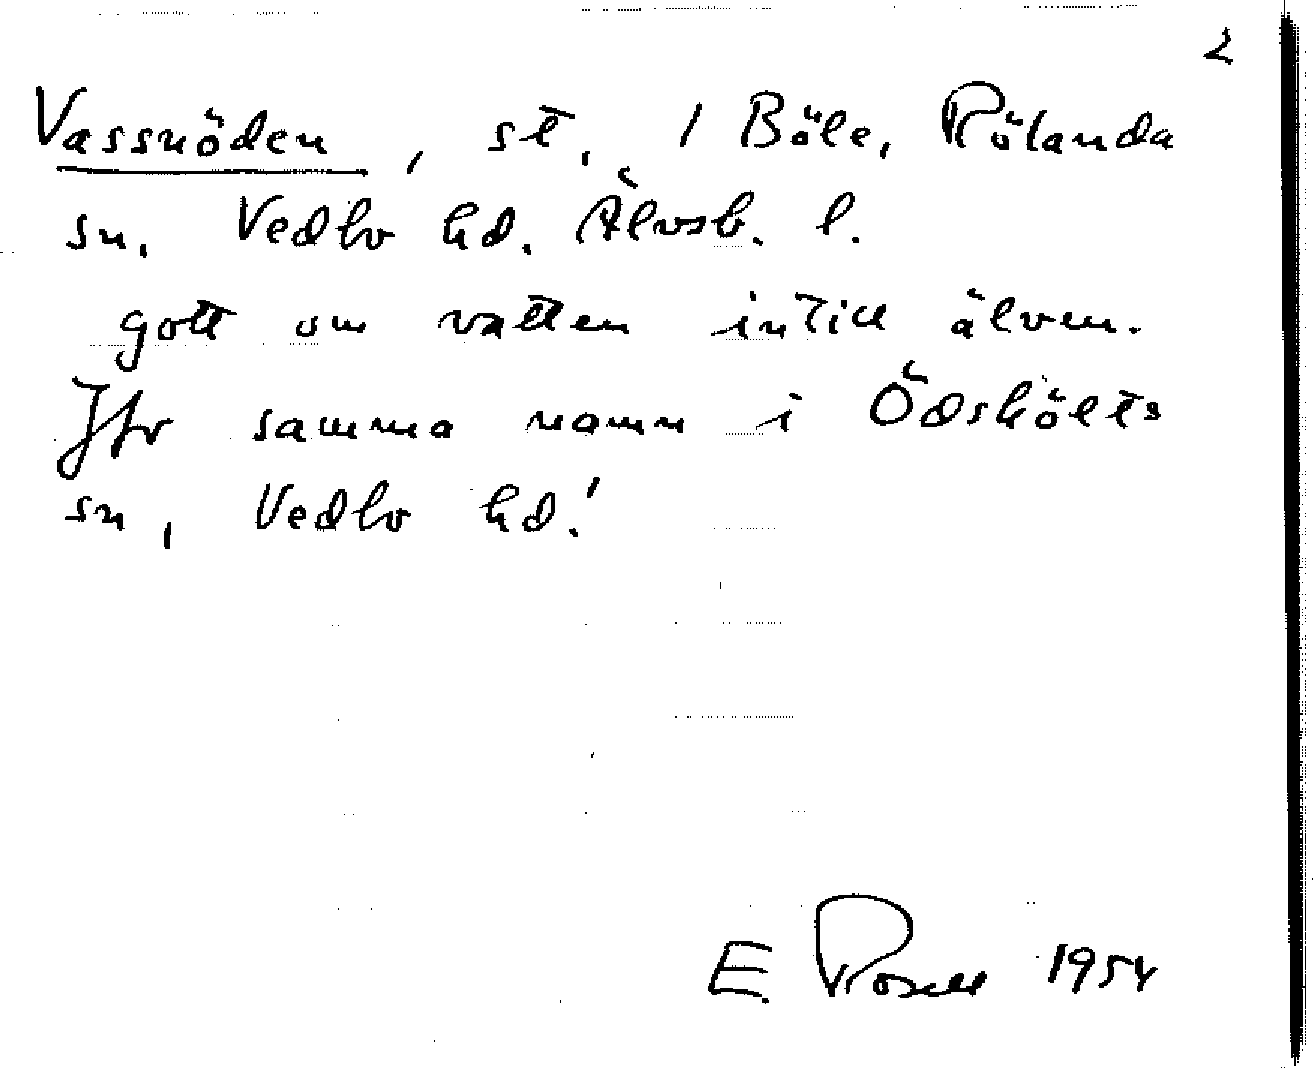 2
Vassnöden, st. 1 Böle, Rölanda
sn. Vedbo hd. Älvsb. l.
gott om vatten intill älven.
Jfr samma namn i Ödskölts
sn, Vedbo hd!
E Rosell 1954